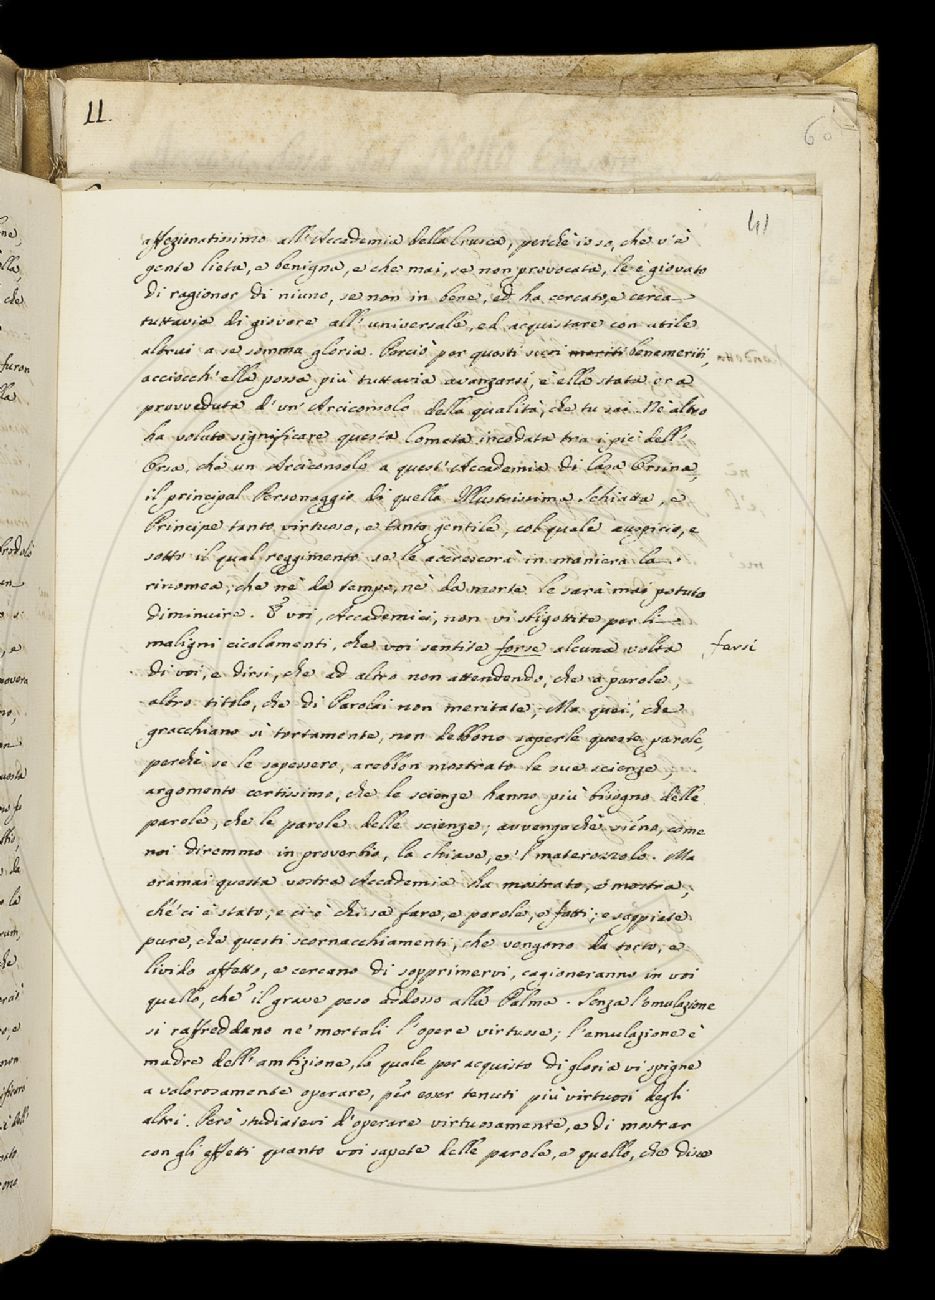 11
60
41
affezionatissimo all'Accademia della Crusca, perchè io so, che v'à
gente lieta, e benigna, e che mai, se non provocata, le è giovato
di ragionar di niuno, se non in bene, ed ha cercato, e cerca
tuttavia di giovare all'universale, ed acquistare con utile
altrui a se somma gloria. Perciò per questi suoi meriti benemeriti,
acciocch'ella possa più tuttavia avanzarsi, è ella stata ora
provveduta d'un'Arciconsolo della qualità, che tu sai. Nè altro
ha voluto significare questa Cometa incodata tra i piè dell'
Orsa, che un Arciconsolo a quest'Accademia di Casa Orsina,
il principal Personaggio di quella Illustrissima Schiatta, e
Principe tanto virtuoso, e tanto gentile, col quale auspicio, e
sotto il qual reggimento se le accrescerà in maniera la
rinomea, che nè da tempo, nè da morte le sarà mai potuto
diminuire. E voi, Accademici, non vi sbigottite per li
maligni cicalamenti, che voi sentite forse alcuna volta
farsi
di voi, e dirsi, che ad altro non attendendo, che a parole,
altro titolo, che di Parolai non meritate, Ma quei, che
gracchiano sì tortamente, non debbono saperle queste parole,
perchè se le sapessero, arebbon mostrato le sue scienze;
argomento certissimo, che le scienze hanno più bisogno delle
parole, che le parole delle scienze; avvengachè sieno, come
noi diremmo in proverbio, la chiave, e 'l materozzolo. Ma
oramai questa vostra Accademia ha mostrato, e mostra,
che ci è stato, e ci è chi sa fare, e parole, e fatti; e sappiate
pure, che questi scornacchiamenti, che vengono da torto, e
livido affetto, e cercano di sopprimervi, cagioneranno in voi
quello, che il grave peso addosso alla Palma. Senza l'emulazione
si raffreddano ne' mortali l'opere virtuose; l'emulazione è
madre dell'ambizione, la quale per acquisto di gloria vi spigne
a valorosamente operare, per esser tenuti più virtuosi degli
altri. Però studiatevi d'operare virtuosamente, e di mostrar
con gli effetti quanto voi sapete delle parole, e quello, che dice